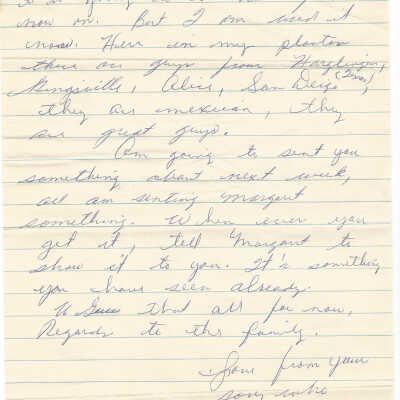 now on. But I am used it
now. Here in my platon
there are guys from Harlingin,
(Texas)
Kingsville, Alice, San Deigo,
they are mexican, they
are great guys.
Am going to sent you
something about next week,
all am senting Margart
something. When ever you
get it, tell Margart to
show it to you. It's something
you have seen already.
Guess that all for now,
Regards to the family.
Love from your